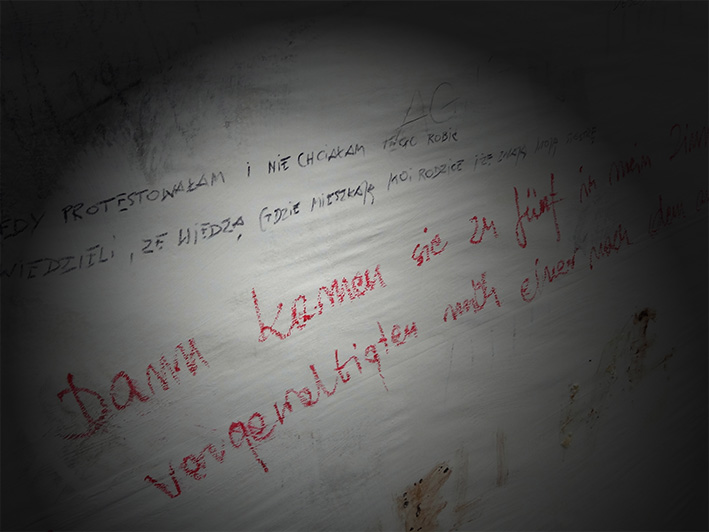 AG
PROTESTOWAŁAM i NIE CHCIAŁAM TEGO ROBIĆ
WIEDZIELI, ŻE WIEDZĄ GDZIE MIESZKAJĄ MOI RODZICE I ŻE ZNAJĄ MOJĄ
Dann kamen sie zu fünf in mein
vergewaltigten mich einer nach dem